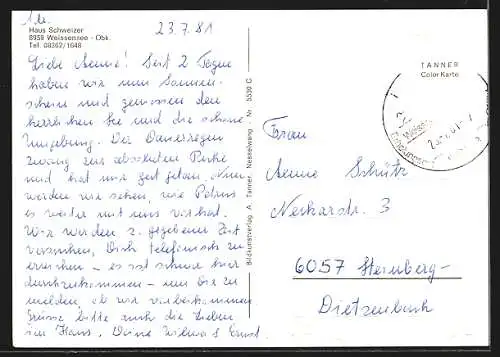 Haus Schweizer
8959 Weissensee - Obk.
Tel. 08362/1648
23.7.81
Liebe Aenne! Seit 2 Tagen
haben wir nun Sonnen-
schein und genießen den
herrlichen See und die schöne
Umgebung. Der Dauerregen
zwang zur absoluten Ruhe
und hat mir gut getan. Nun
werden wir sehen, wie Petrus
es weiter mit uns vorhat.
Wir werden z. gegebenen Zeit
versuchen, Dich telefonisch zu
erreichen - es ist schwer hier
durchzukommen - um Dir zu
melden, ob wir vorbeikommen
Grüsse bitte auch die Lieben
im Haus. Deine Wilma & Ernst
Bildkunstverlag A. Tanner, Nesselwang Nr. 5530 C
TANNER
Color Karte
Frau
Aenne Schütz
Neckarstr. 3
6057 Steinberg-
Dietzenbach